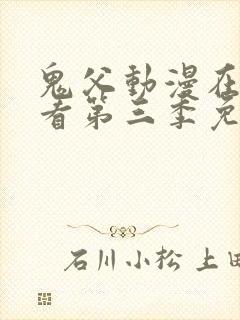 鬼父動漫在
看第三季免
石川小松 上田